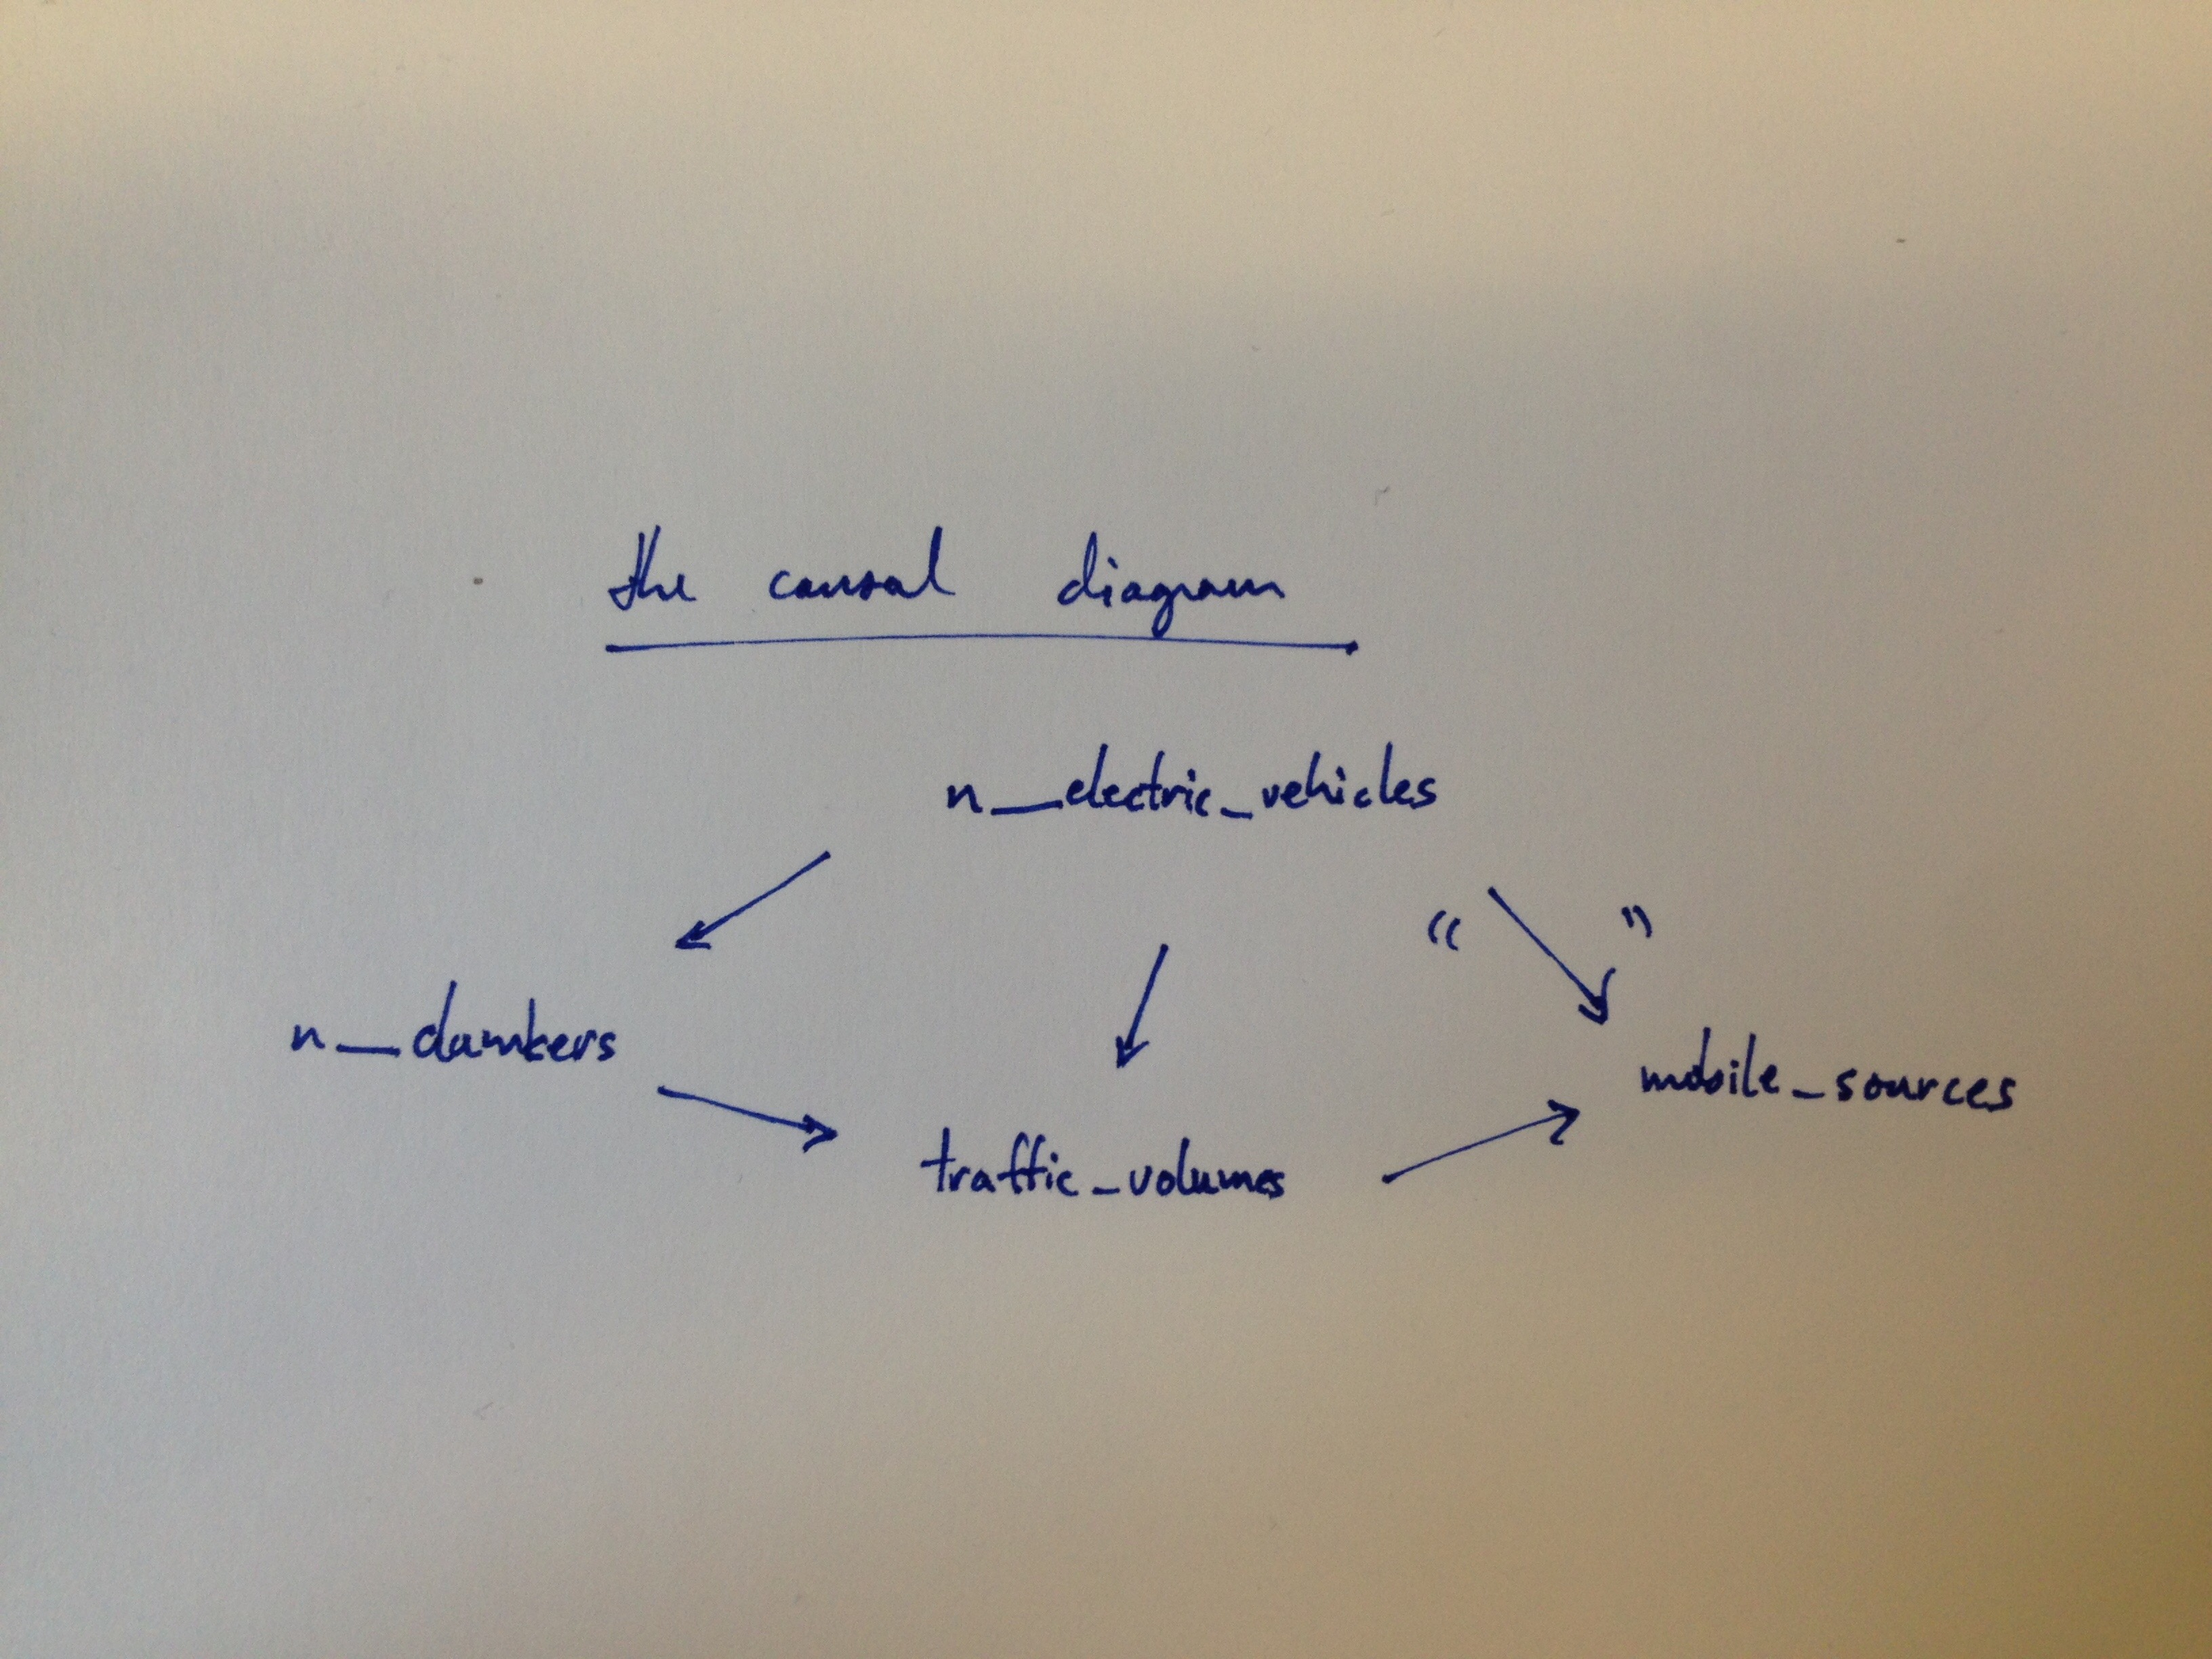 the causal diagram
n_electric_vehicles
“ ”
n_damkers
mobile_sources
traffic_volumes